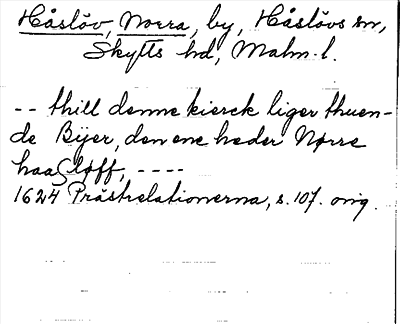 Håslöv, Norra, by, Håslövs sn,
Skytts hd, Malm. l.
-- thill denne kierck liger thuen-
de Bÿer, den ene heder Nørre
haasløff, ----
1624 Prästrelationerna, s. 107. orig.